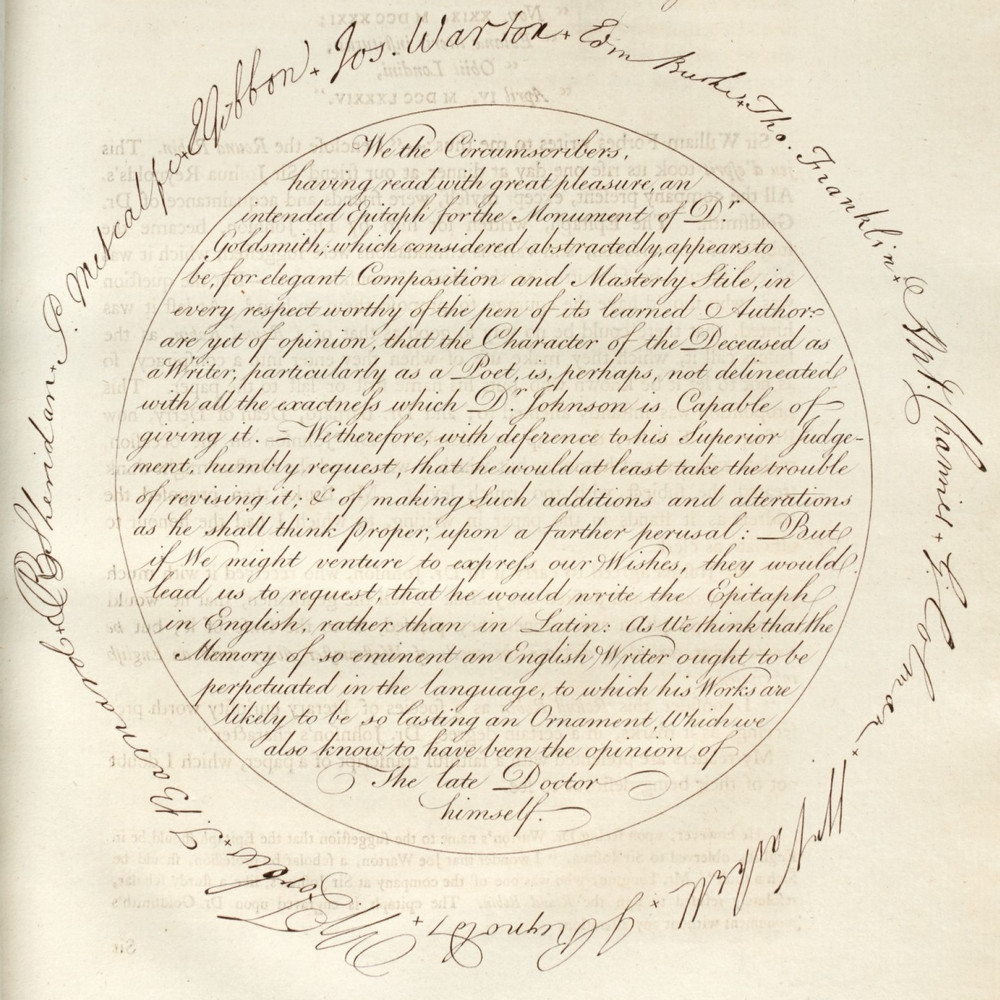 We the Circumscribers,
having read with great pleasure, an
intended Epitaph for the Monument of Dr.
Goldsmith; which considered abstractedly, appears to
be, for elegant Composition and Masterly Stile, in
every respect worthy of the pen of its learned Author:
are yet of opinion, that the Character of the Deceased as
a Writer, particularly as a Poet, is, perhaps, not delineated
with all the exactness which Dr. Johnson is Capable of
giving it. — We therefore, with deference to his Superior Judge-
ment, humbly request, that he would at least take the trouble
of revising it; & of making Such additions and alterations
as he shall think proper, upon a farther perusal: But
if We might venture to express our Wishes, they would
lead us to request, that he would write the Epitaph
in English, rather than in Latin: As We think that the
Memory of so eminent an English Writer ought to be
perpetuated in the language, to which his Works are
likely to be so lasting an Ornament, Which we
also know to have been the opinion of
The late Doctor
himself.
Jos. Warton +
Edm Burke +
Tho. Franklin +
Ant. Chamier +
G. Colman +
J Reynolds +
T. Barnard +
RBSheridan +
P. Metcalfe +
EGibbon +